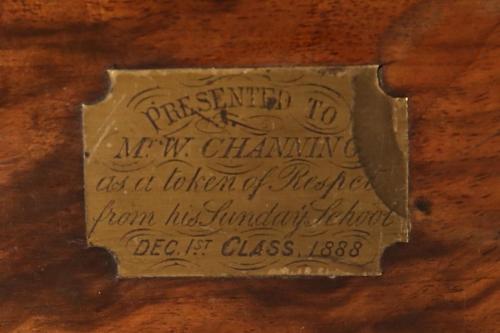 PRESENTED TO
Mr. W. CHANNING
as a token of Respect
from his Sunday School
DEC. 1ST CLASS. 1888